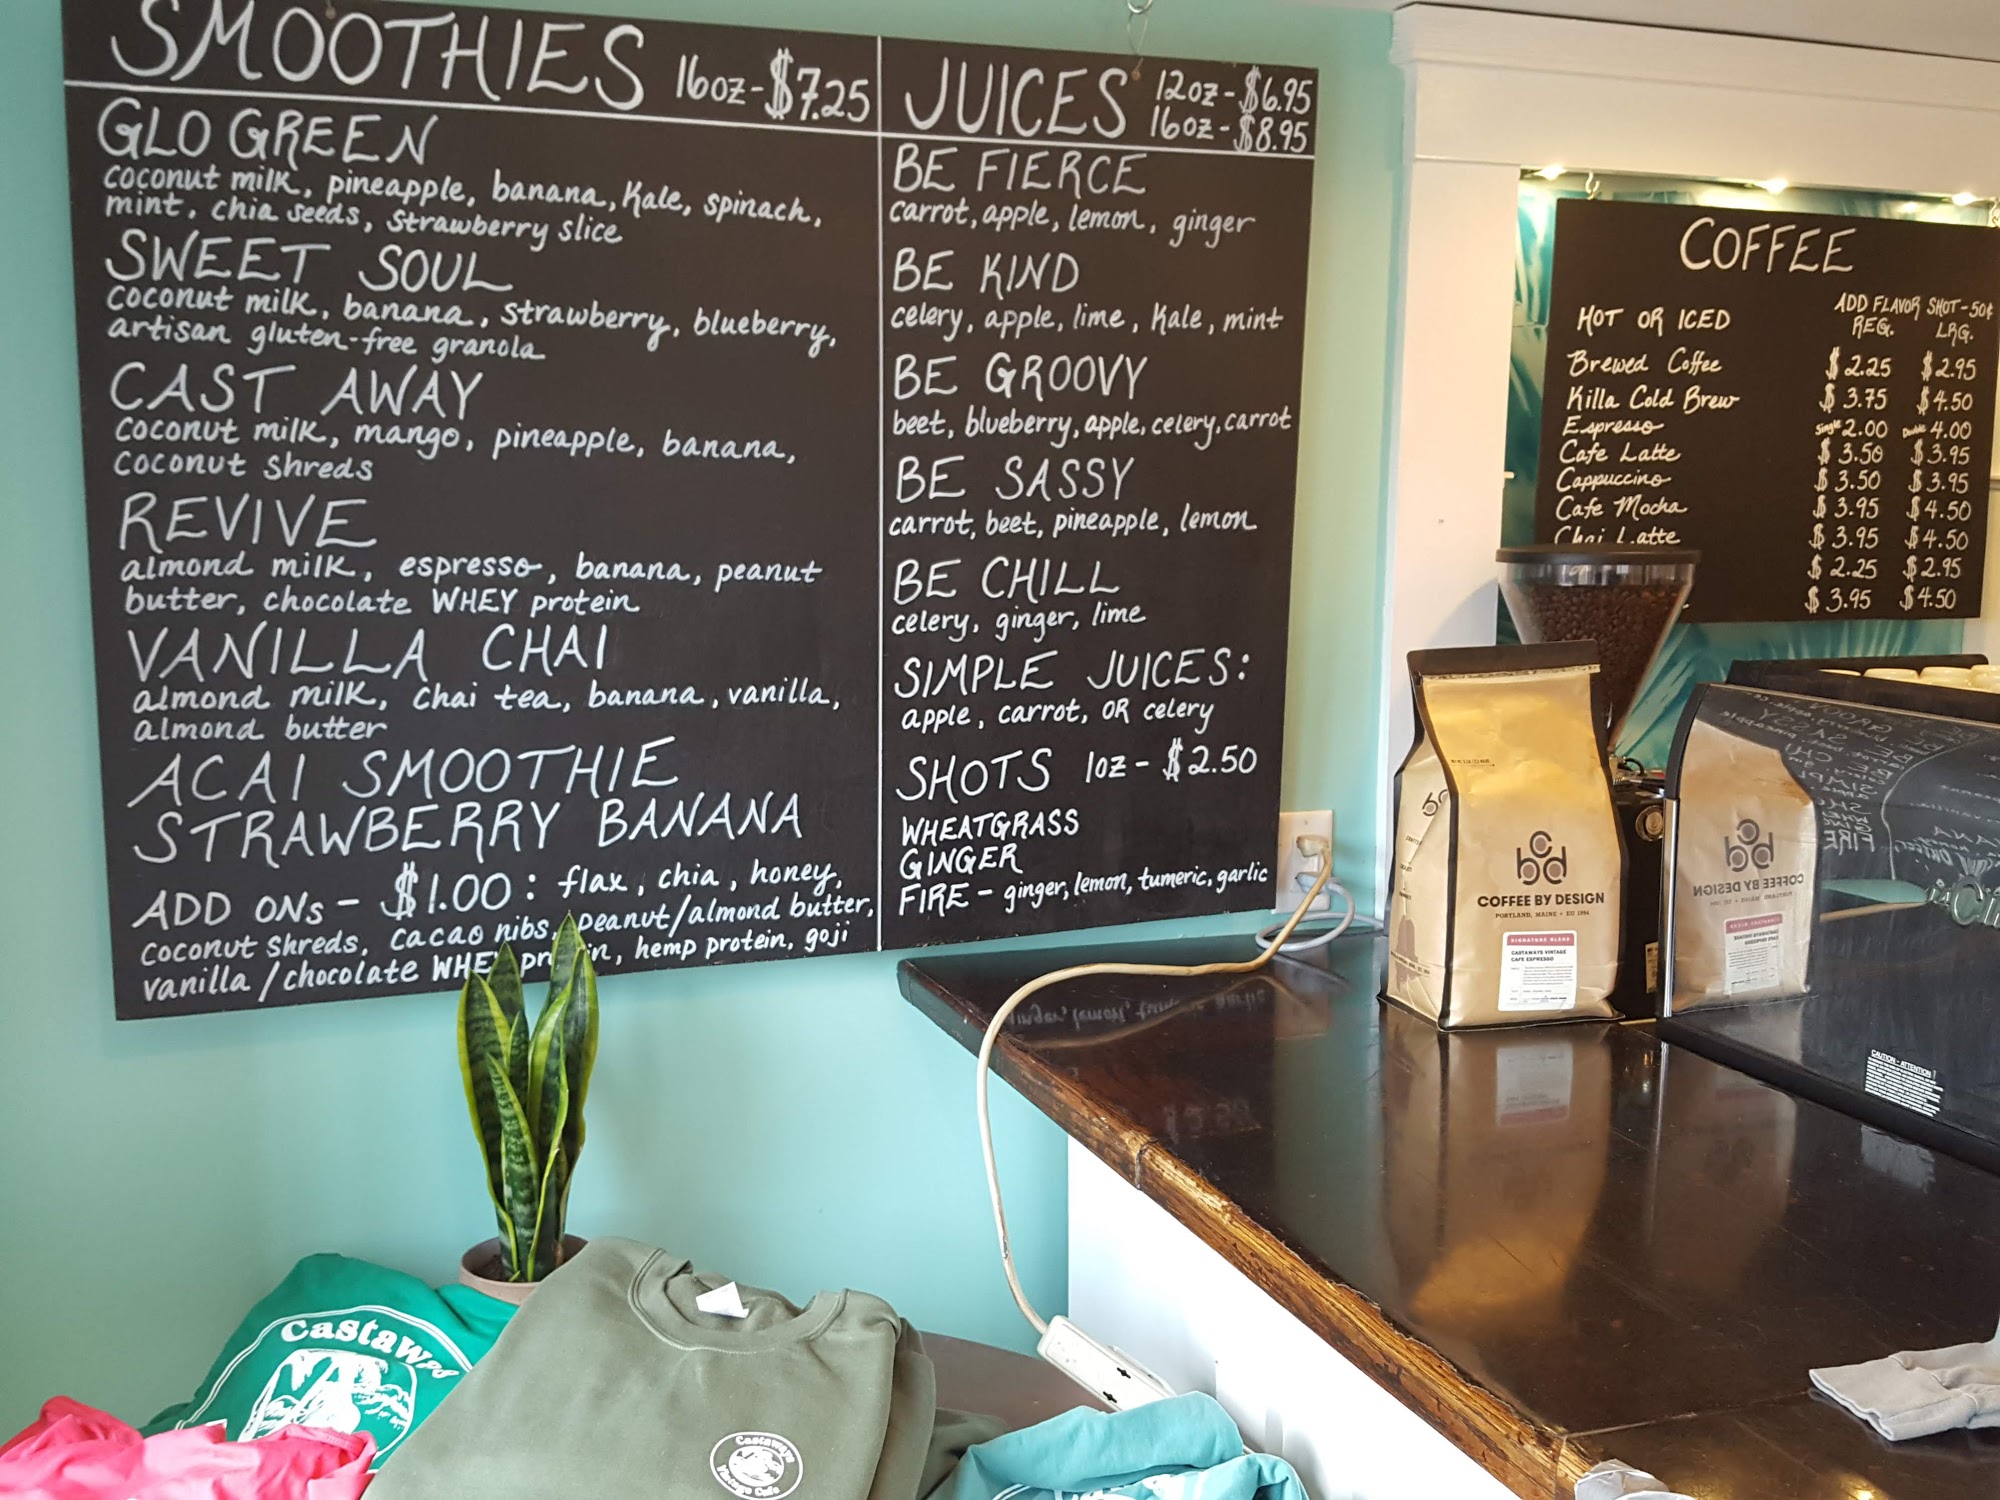 SMOOTHIES 16oz-$7.25
GLO GREEN
coconut milk, pineapple, banana, Kale, spinach,
mint, chia seeds, strawberry slice
SWEET SOUL
coconut milk, banana, strawberry, blueberry,
artisan gluten-free granola
CAST AWAY
coconut milk, mango, pineapple, banana,
coconut shreds
REVIVE
almond milk, espresso, banana, peanut
butter, chocolate WHEY protein
VANILLA CHAI
almond milk, chai tea, banana, vanilla,
almond butter
ACAI SMOOTHIE
STRAWBERRY BANANA
ADD ONs - $1.00: flax, chia, honey,
coconut shreds, cacao nibs, peanut/almond butter,
vanilla/chocolate WHEY protein, hemp protein, goji
JUICES 12oz-$6.95
16oz-$8.95
BE FIERCE
carrot, apple, lemon, ginger
BE KIND
celery, apple, lime, Kale, mint
BE GROOVY
beet, blueberry, apple, celery, carrot
BE SASSY
carrot, beet, pineapple, lemon
BE CHILL
celery, ginger, lime
SIMPLE JUICES:
apple, carrot, OR celery
SHOTS 1oz - $2.50
WHEATGRASS
GINGER
FIRE - ginger, lemon, tumeric, garlic
COFFEE
HOT OR ICED ADD FLAVOR SHOT-50¢
REG. LRG.
Brewed Coffee $2.25 $2.95
Killa Cold Brew $3.75 $4.50
Espresso Single 2.00 Double 4.00
Cafe Latte $3.50 $3.95
Cappuccino $3.50 $3.95
Cafe Mocha $3.95 $4.50
Chai Latte $3.95 $4.50
$2.25 $2.95
$3.95 $4.50
cbd
COFFEE BY DESIGN
PORTLAND, MAINE • EST 1994
SIGNATURE BLEND
CASTAWAYS VINTAGE
CAFE ESPRESSO
CAUTION - ATTENTION
Castaways
Castaways
Vintage Cafe